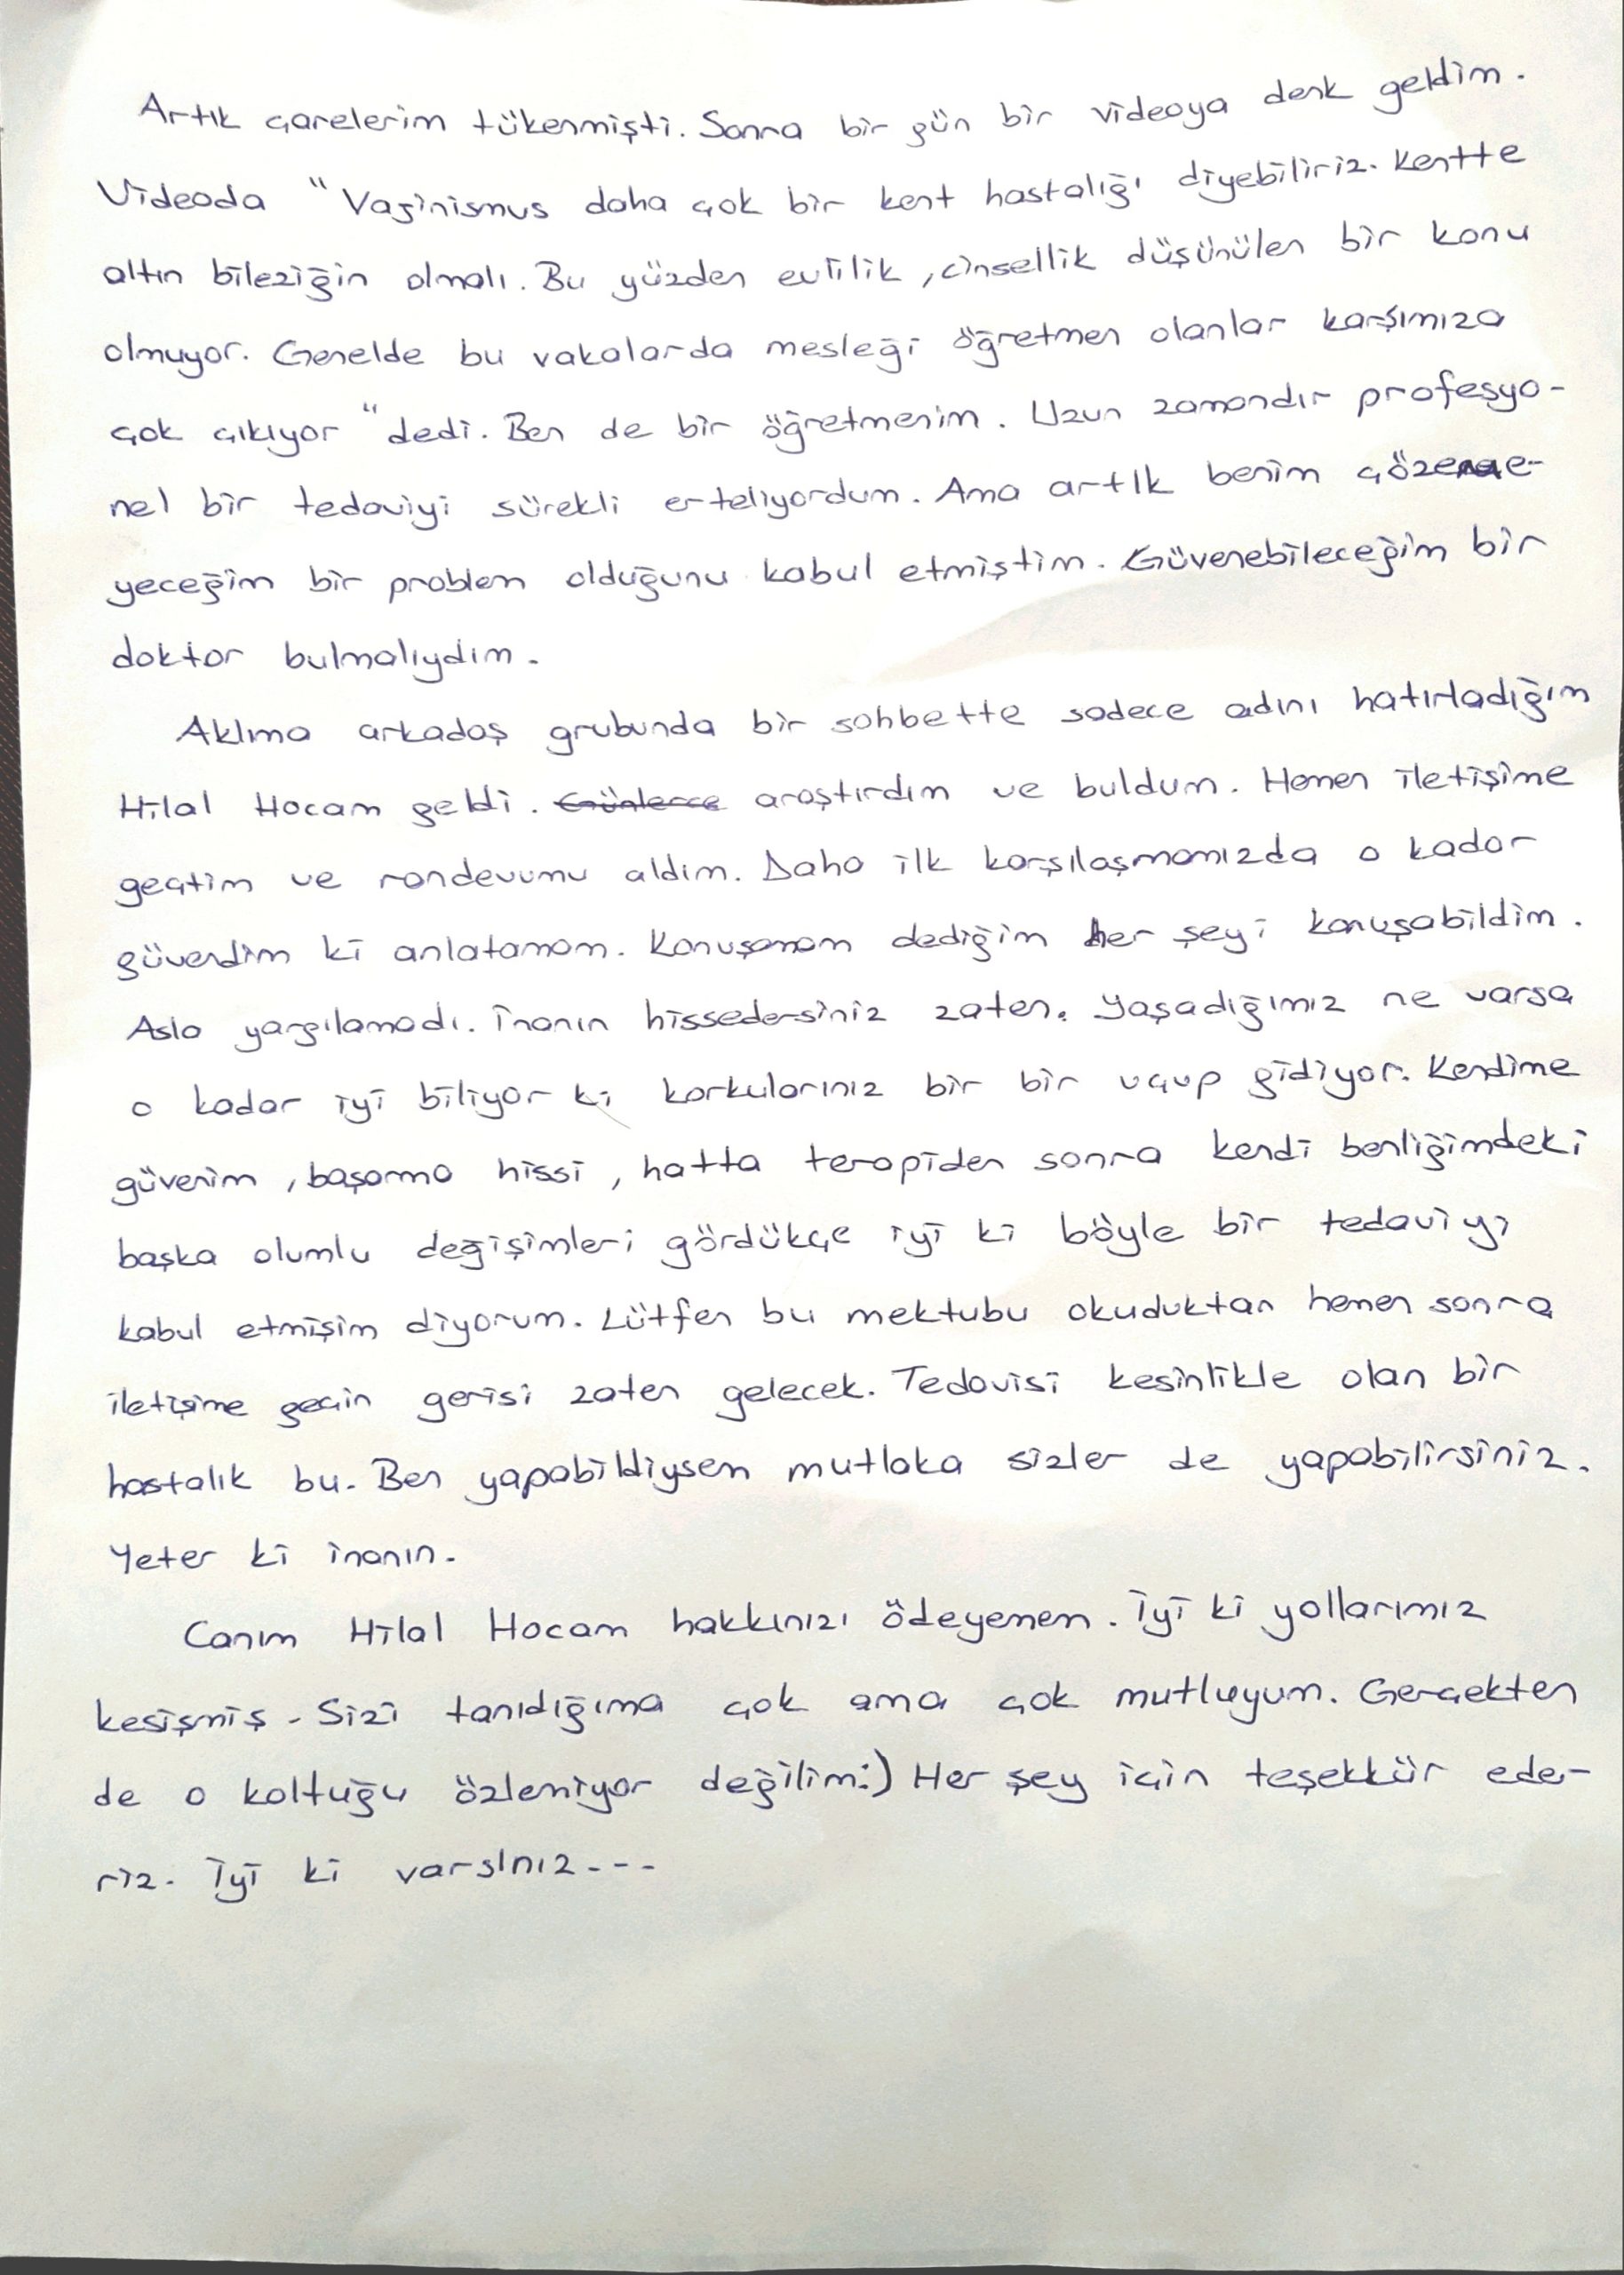 Artık çarelerim tükenmişti. Sonra bir gün bir videoya denk geldim.
Videoda "Vajinismus daha çok bir kent hastalığı diyebiliriz. Kentte
altın bileziğin olmalı. Bu yüzden evlilik, cinsellik düşünülen bir konu
olmuyor. Genelde bu vakalarda mesleği öğretmen olanlar karşımıza
çok çıkıyor" dedi. Ben de bir öğretmenim. Uzun zamandır profesyo-
nel bir tedaviyi sürekli erteliyordum. Ama artık benim çözeme-
yeceğim bir problem olduğunu kabul etmiştim. Güvenebileceğim bir
doktor bulmalıydım.
Aklıma arkadaş grubunda bir sohbette sadece adını hatırladığım
Hilal Hocam geldi. Günlerce araştırdım ve buldum. Hemen iletişime
geçtim ve randevumu aldım. Daha ilk karşılaşmamızda o kadar
güvendim ki anlatamam. Konuşamam dediğim her şeyi konuşabildim.
Asla yargılamadı. İnanın hissedersiniz zaten. Yaşadığımız ne varsa
o kadar iyi biliyor ki korkularınız bir bir uçup gidiyor. Kendime
güvenim, başarma hissi, hatta terapiden sonra kendi benliğimdeki
başka olumlu değişimleri gördükçe iyi ki böyle bir tedaviyi
kabul etmişim diyorum. Lütfen bu mektubu okuduktan hemen sonra
iletişime geçin gerisi zaten gelecek. Tedavisi kesinlikle olan bir
hastalık bu. Ben yapabildiysem mutlaka sizler de yapabilirsiniz.
Yeter ki inanın.
Canım Hilal Hocam hakkınızı ödeyemem. İyi ki yollarımız
kesişmiş. Sizi tanıdığıma çok ama çok mutluyum. Gerçekten
de o koltuğu özlemiyor değilim:) Her şey için teşekkür ede-
riz. İyi ki varsınız...